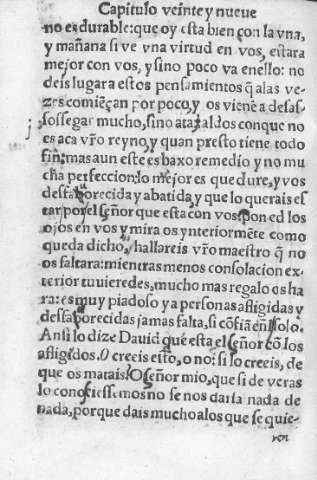 Capitulo veinte y nueve
no es durable: que oy esta bien con la vna,
y mañana si ve vna virtud en vos, estara
mejor con vos, y sino poco va en ello: no
deis lugar a estos pensamientos q̃ a las ve-
zes comiẽçan por poco, y os vienẽ a desas-
sossegar mucho, sino atajaldos con que no
es aca vr̃o reyno, y quan presto tiene todo
fin: mas aun este es baxo remedio y no mu
cha perfeccion: lo mejor es que dure, y vos
desfaborecida y abatida, y que lo querais es
tar por el señor que esta con vos: poned los
ojos en vos y mira os ynteriormẽte como
queda dicho, hallareis vr̃o maestro q̃ no
os faltara: mientras menos consolacion ex-
terior tuuieredes, mucho mas regalo os ha
ra: es muy piadoso y a personas afligidas y
desfaborecidas jamas falta, si cõfiã en el solo.
Ansi lo dize Dauid que esta el señor cõ los
afligidos. O creeis esto, o no: si lo creeis, de
que os matais? O señor mio, que si de veras
lo conociessemos no se nos daria nada de
nada, porque dais mucho a los que se quie-
ren